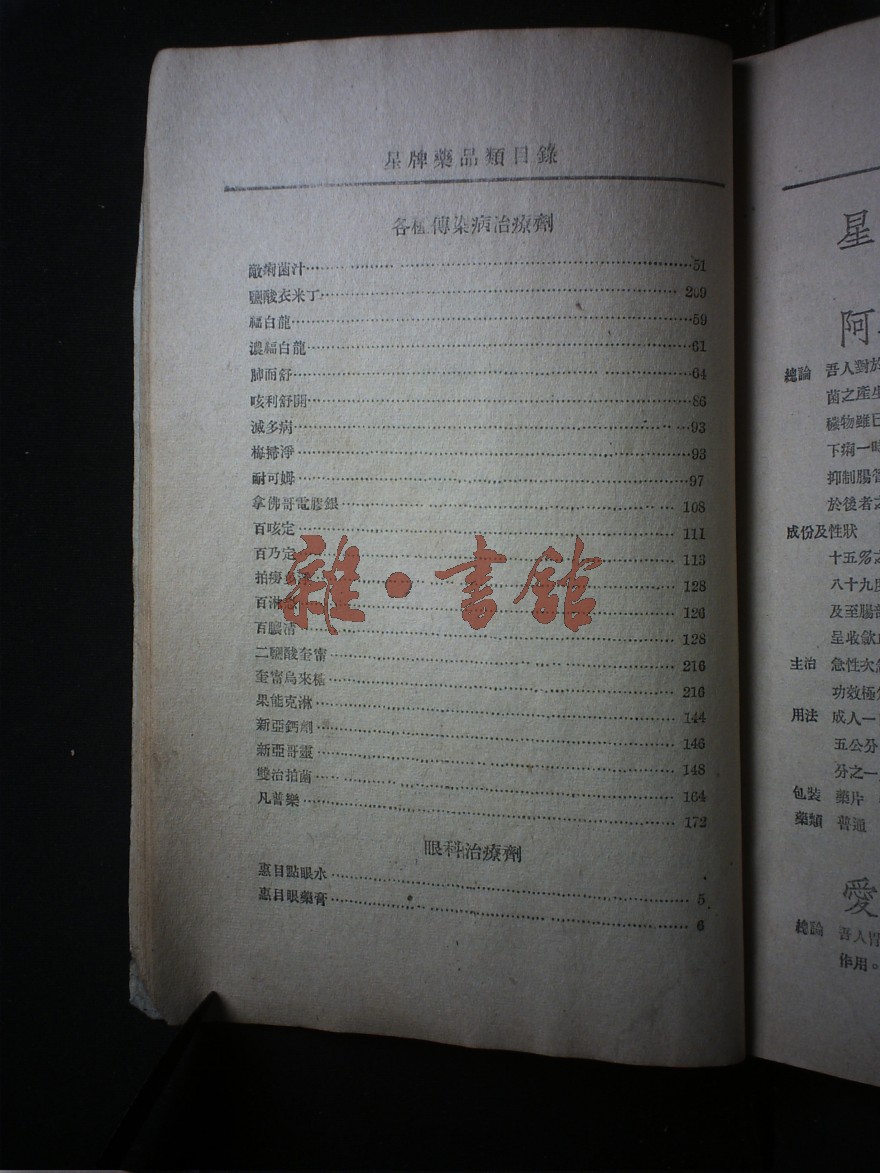 星牌藥品類目錄
各種傳染病治療劑
敵痢菌汁 51
鹽酸衣米丁 209
福白龍 59
濃福白龍 61
肺而舒 64
咳利舒開 86
滅多病 93
梅掃淨 93
耐可姆 97
拿佛哥電膠銀 108
百咳定 111
百乃定 113
拍癆 128
百淋 126
百膿清 128
二鹽酸奎甯 216
奎甯烏來樋 216
果能克淋 144
新亞鈣劑 146
新亞哥靈 148
雙治拍菌 164
凡普樂 172
眼科治療劑
惠目點眼水 5
惠目眼藥膏 6
雜·書館
星
阿
總論 吾人對於
菌之產生
穢物雖已
下痢一時
抑制腸管
於後者之
成份及性狀
十五%之
八十九度
及至腸部
呈收歛
主治 急性次
功效極
用法 成人一
五公分
分之一
包裝 藥片
藥類 普通
愛
總論 吾人胃
作用。